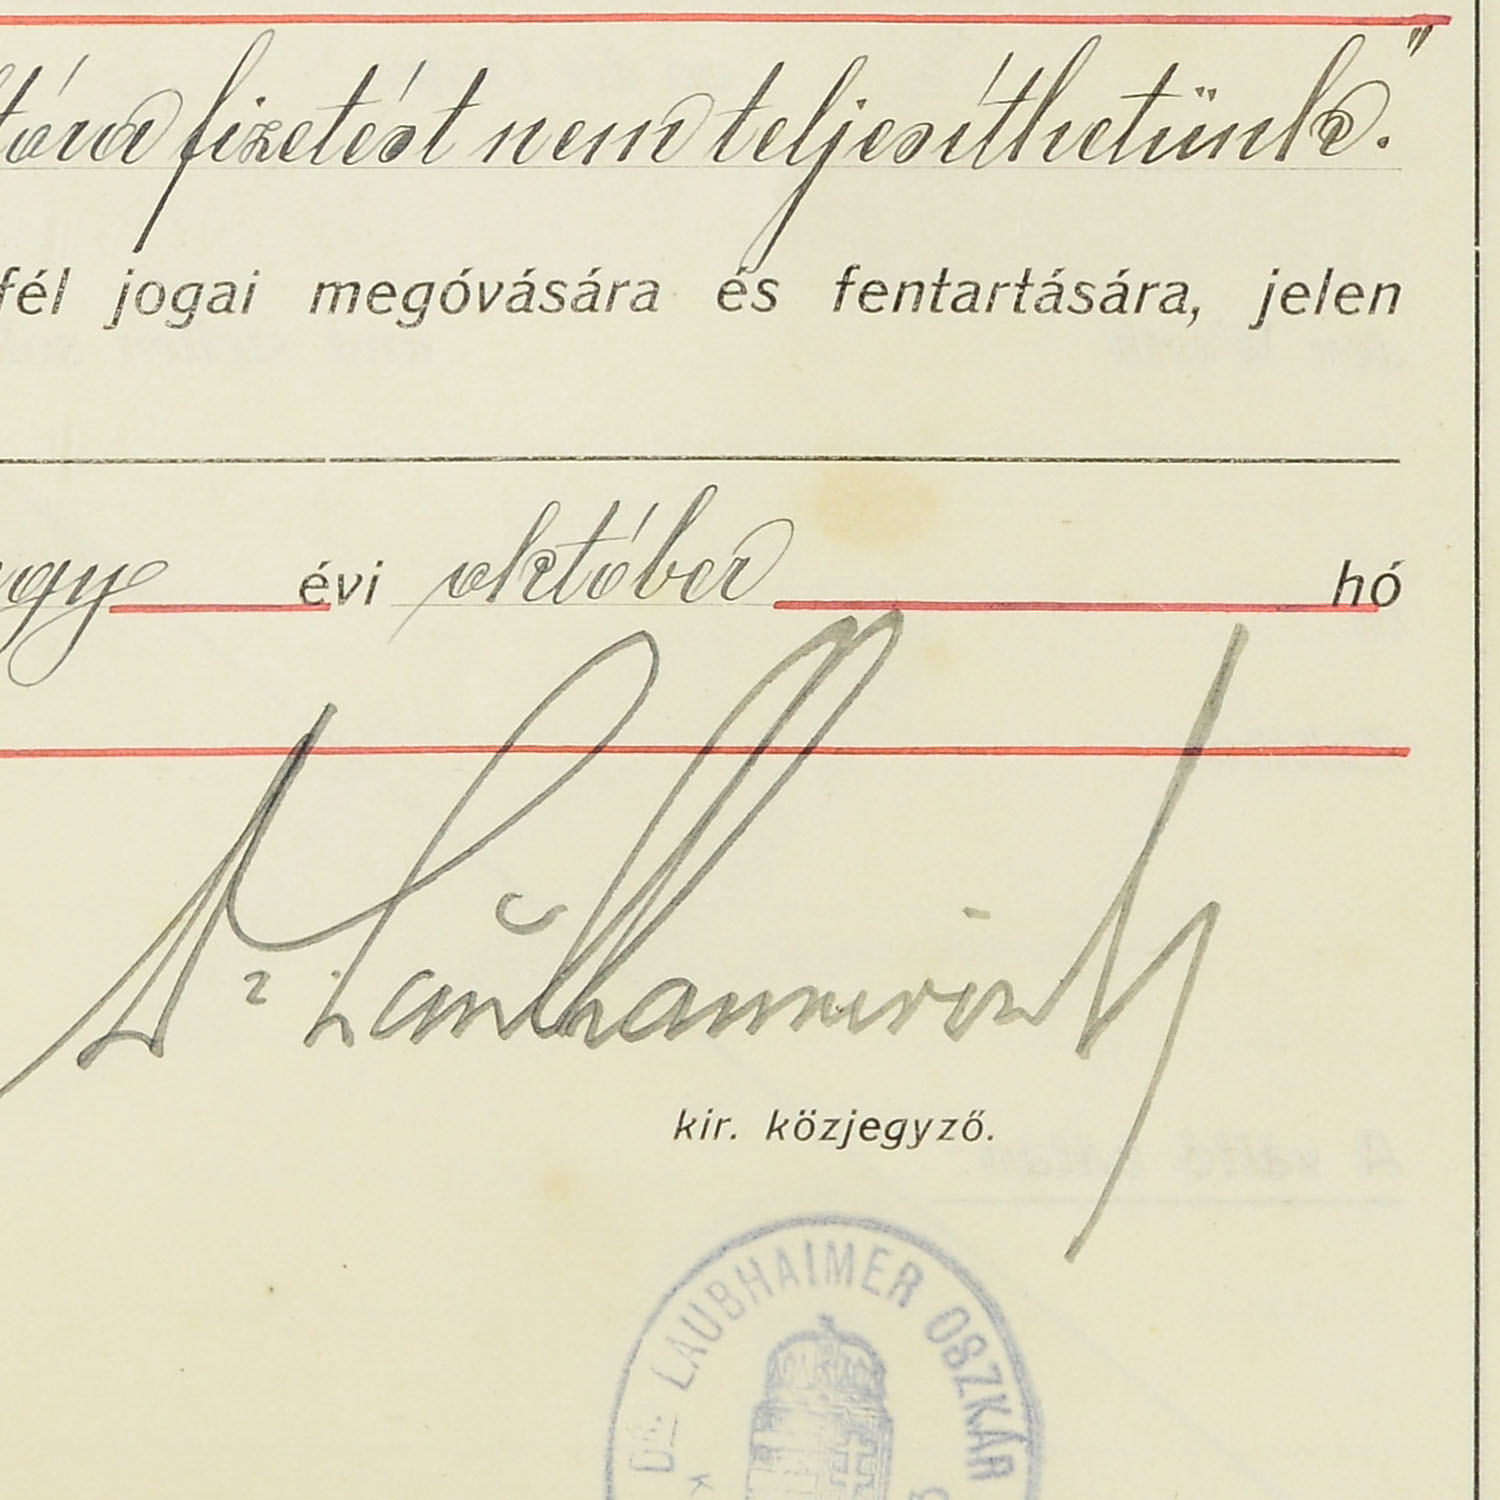 fizetést nem teljesíthetünk."
fél jogai megóvására és fentartására, jelen
évi október hó
Dr Laubhaimer
kir. közjegyző.
DR LAUBHAIMER OSZKÁR